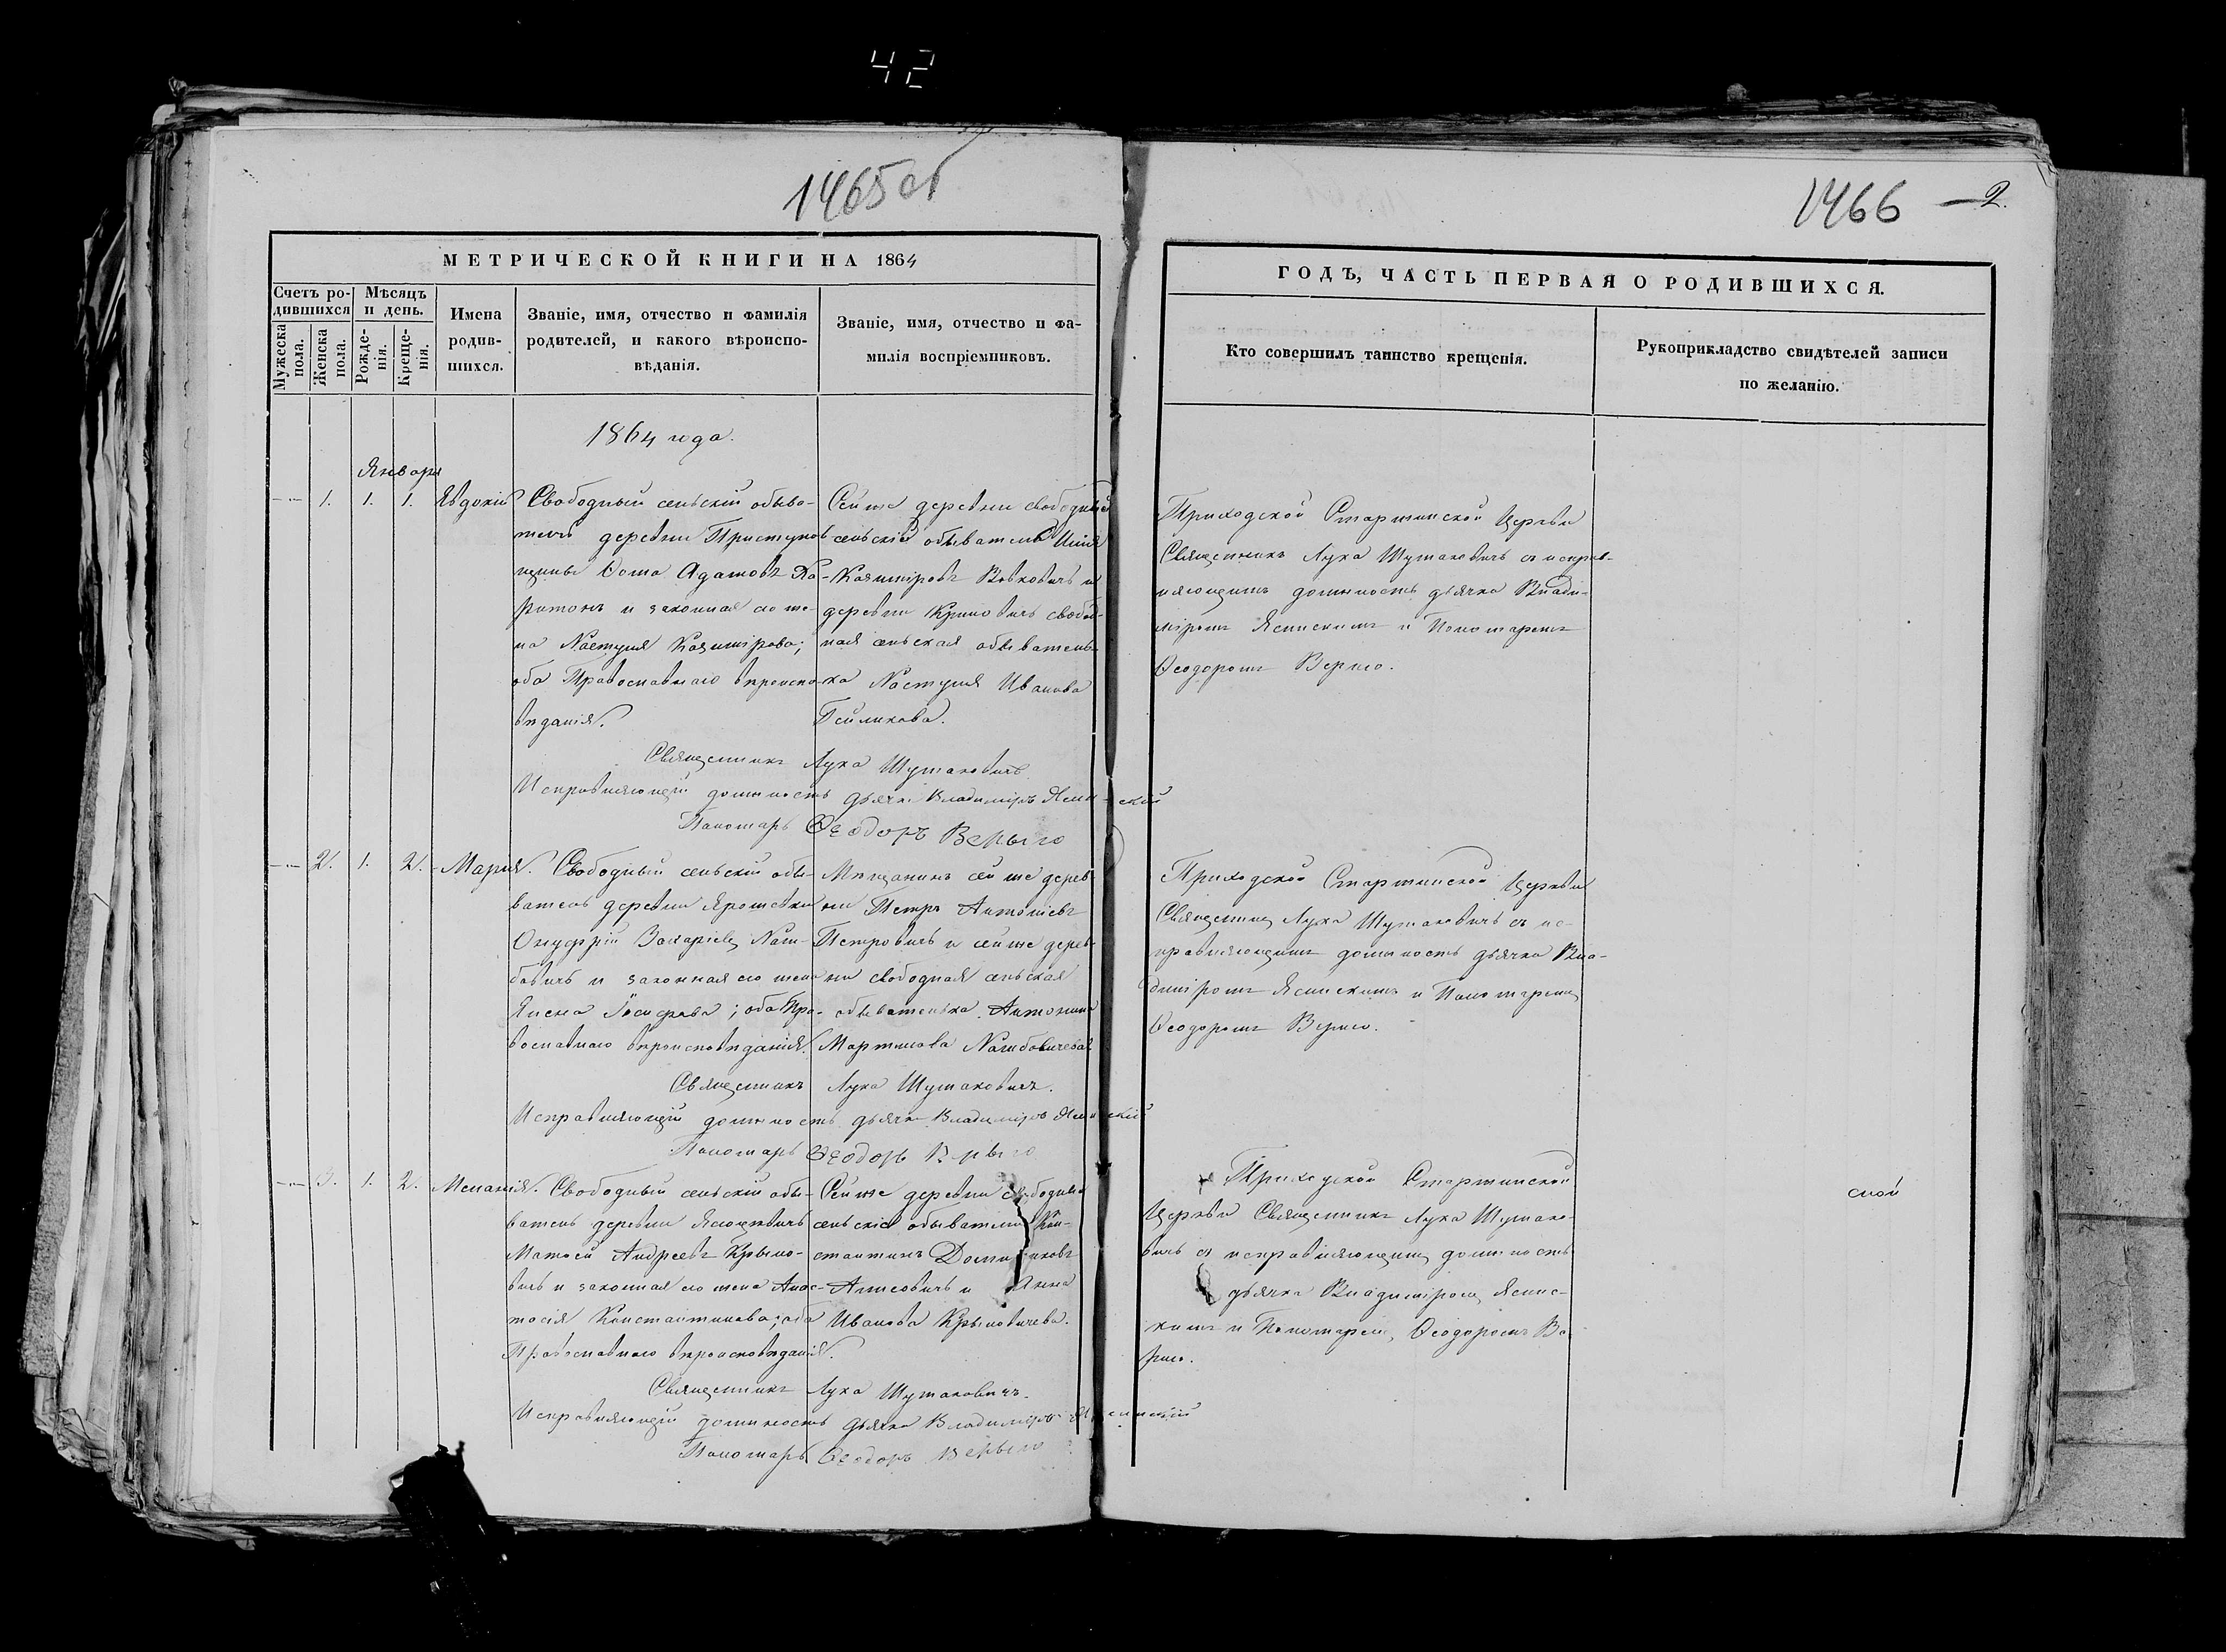 42
1465об
1466 — 2.
МЕТРИЧЕСКОЙ КНИГИ НА 1864
ГОДЪ, ЧАСТЬ ПЕРВАЯ О РОДИВШИХСЯ.
Счетъ ро-
дившихся
Мужеска пола.
Женска пола.
Мѣсяцъ
и день.
Рожде-
нія.
Креще-
нія.
Имена
родив-
шихся.
Званіе, имя, отчество и фамилія
родителей, и какого вѣроиспо-
вѣданія.
Званіе, имя, отчество и фа-
милія воспріемниковъ.
Кто совершилъ таинство крещенія.
Рукоприкладство свидѣтелей записи
по желанію.
1864 года.
Января
1. 1. 1. Евдокія
Свободный сельскій обыва-
тель деревни
Ѳома Адамовъ Ха-
ритонъ и законная его же-
на Настулія Казимірова;
оба Православнаго вѣроиспо-
вѣданія.
Сей же деревни свободный
сельскій обыватель
Казиміровъ Вовковичъ и
деревни свобод-
ная сельская обыватель-
ка Настулія Иванова
Приходской Церкви
Священникъ Лука Шумаковичъ съ исправ-
ляющимъ должность дьячка Влади-
міромъ Ясинскимъ и Пономаремъ
Ѳеодоромъ Верыго.
Священникъ Лука Шумаковичъ
Исправляющій должность дьячка Владиміръ Ясинскій
Пономарь Ѳеодоръ Верыго
2. 1. 2. Марія.
Свободный сельскій обы-
ватель деревни
Онуфрій Захаріевъ
и законная его жена
Іосифова; оба Пра-
вославнаго вѣроисповѣданія.
Мѣщанинъ сей же дерев-
ни Петръ Антоніевъ
Петровичъ и сей же дерев-
ни свободная сельская
обывателька Антонина
Мартинова
Приходской Церкви
Священникъ Лука Шумаковичъ съ ис-
правляющимъ должность дьячка Вла-
диміромъ Ясинскимъ и Пономаремъ
Ѳеодоромъ Верыго.
Священникъ Лука Шумаковичъ.
Исправляющій должность дьячка Владиміръ Ясинскій
Пономарь Ѳеодоръ Верыго
3. 1. 2. Меланія.
Свободный сельскій обы-
ватель деревни
Андреевъ Крыло-
вичъ и законная его жена Анас-
тасія Константинова; оба
Православнаго вѣроисповѣданія.
Сей же деревни свободные
сельскіе обыватели Кон-
стантинъ
и Анна
Иванова Крыловичева.
Приходской
Церкви Священникъ Лука Шумако-
вичъ съ исправляющимъ должность
дьячка Владиміромъ Ясинс-
кимъ и Пономаремъ Ѳеодоромъ Ве-
рыго.
Священникъ Лука Шумаковичъ.
Исправляющій должность дьячка Владиміръ Ясинскій
Пономарь Ѳеодоръ Верыго